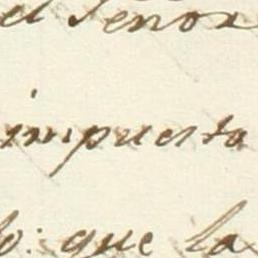 el Senor
impuesta
lo: que la